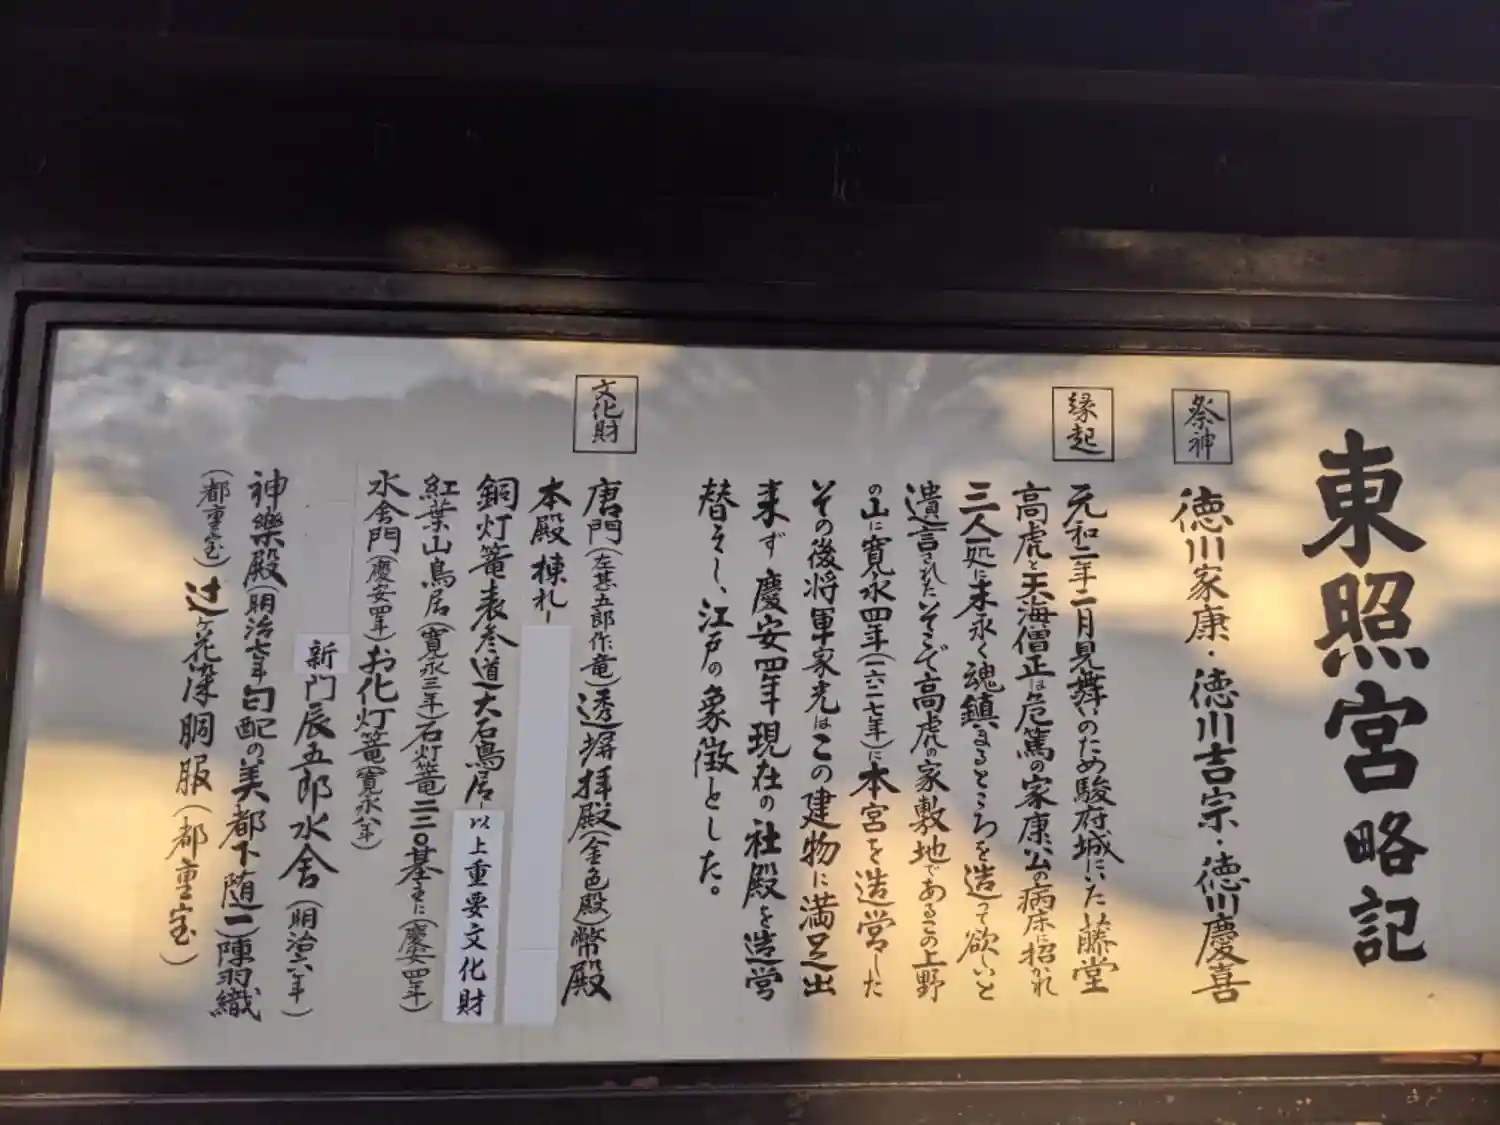 東照宮略記
祭神
徳川家康・徳川吉宗・徳川慶喜
縁起
元和二年二月見舞のため駿府城にいた藤堂
高虎と天海僧正は危篤の家康公の病床に招かれ
三人一処に末永く魂鎮まるところを造って欲しいと
遺言されたそこで高虎の家敷地であるこの上野
の山に寛永四年(一六二七年)に本宮を造営した
その後将軍家光はこの建物に満足出
来ず慶安四年現在の社殿を造営
替えし、江戸の象徴とした。
文化財
唐門(左甚五郎作竜)透塀拝殿(金色殿)幣殿
本殿棟札
銅灯篭表参道大石鳥居以上重要文化財
紅葉山鳥居(寛永三年)石灯篭二二〇基(慶安四年)
水舎門(慶安四年)お化灯篭(寛永八年)
新門辰五郎水舎(明治六年)
神樂殿(明治七年)勾配の美都下随一)陣羽織
(都重宝)辻ヶ花染胴服(都重宝)